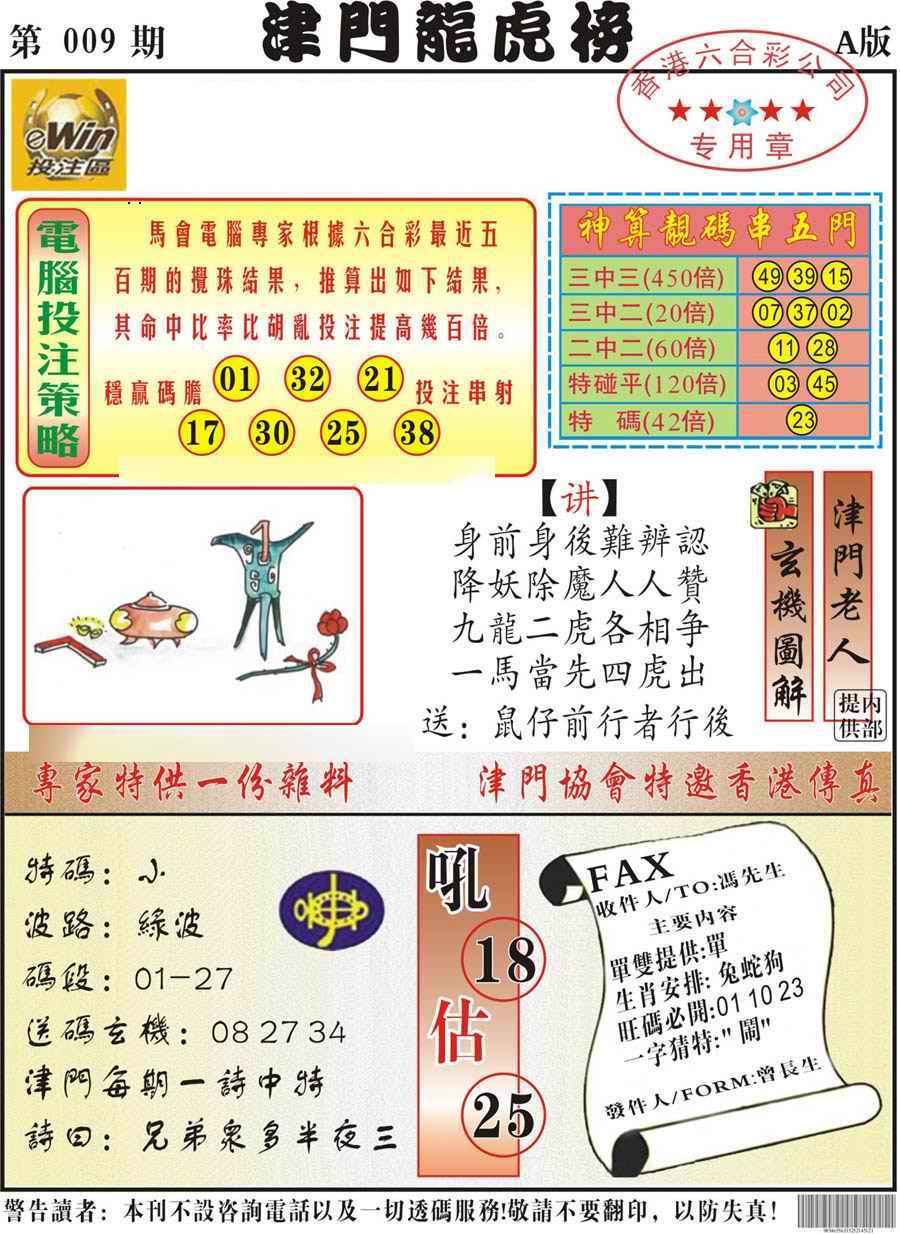 第 009 期
津門龍虎榜
A版
香港六合彩公司
专用章
eWin
投注區
電腦投注策略
馬會電腦專家根據六合彩最近五
百期的攪珠結果，推算出如下結果，
其命中比率比胡亂投注提高幾百倍。
穩贏碼膽 01 32 21 投注串射
17 30 25 38
神算靚碼串五門
三中三(450倍) 49 39 15
三中二(20倍) 07 37 02
二中二(60倍) 11 28
特碰平(120倍) 03 45
特 碼(42倍) 23
1
【讲】
身前身後難辨認
降妖除魔人人贊
九龍二虎各相争
一馬當先四虎出
送：鼠仔前行者行後
玄機圖解
津門老人
内部提供
專家特供一份雜料
津門協會特邀香港傳真
特碼：小
波路：綠波
碼段：01-27
送碼玄機：08 27 34
津門每期一詩中特
詩曰：兄弟衆多半夜三
吼
18
估
25
FAX
收件人/TO:馮先生
主要内容
單雙提供:單
生肖安排:兔蛇狗
旺碼必開:01 10 23
一字猜特:"鬧"
發件人/FORM:曾長生
警告讀者：本刊不設咨詢電話以及一切透碼服務!敬請不要翻印，以防失真!